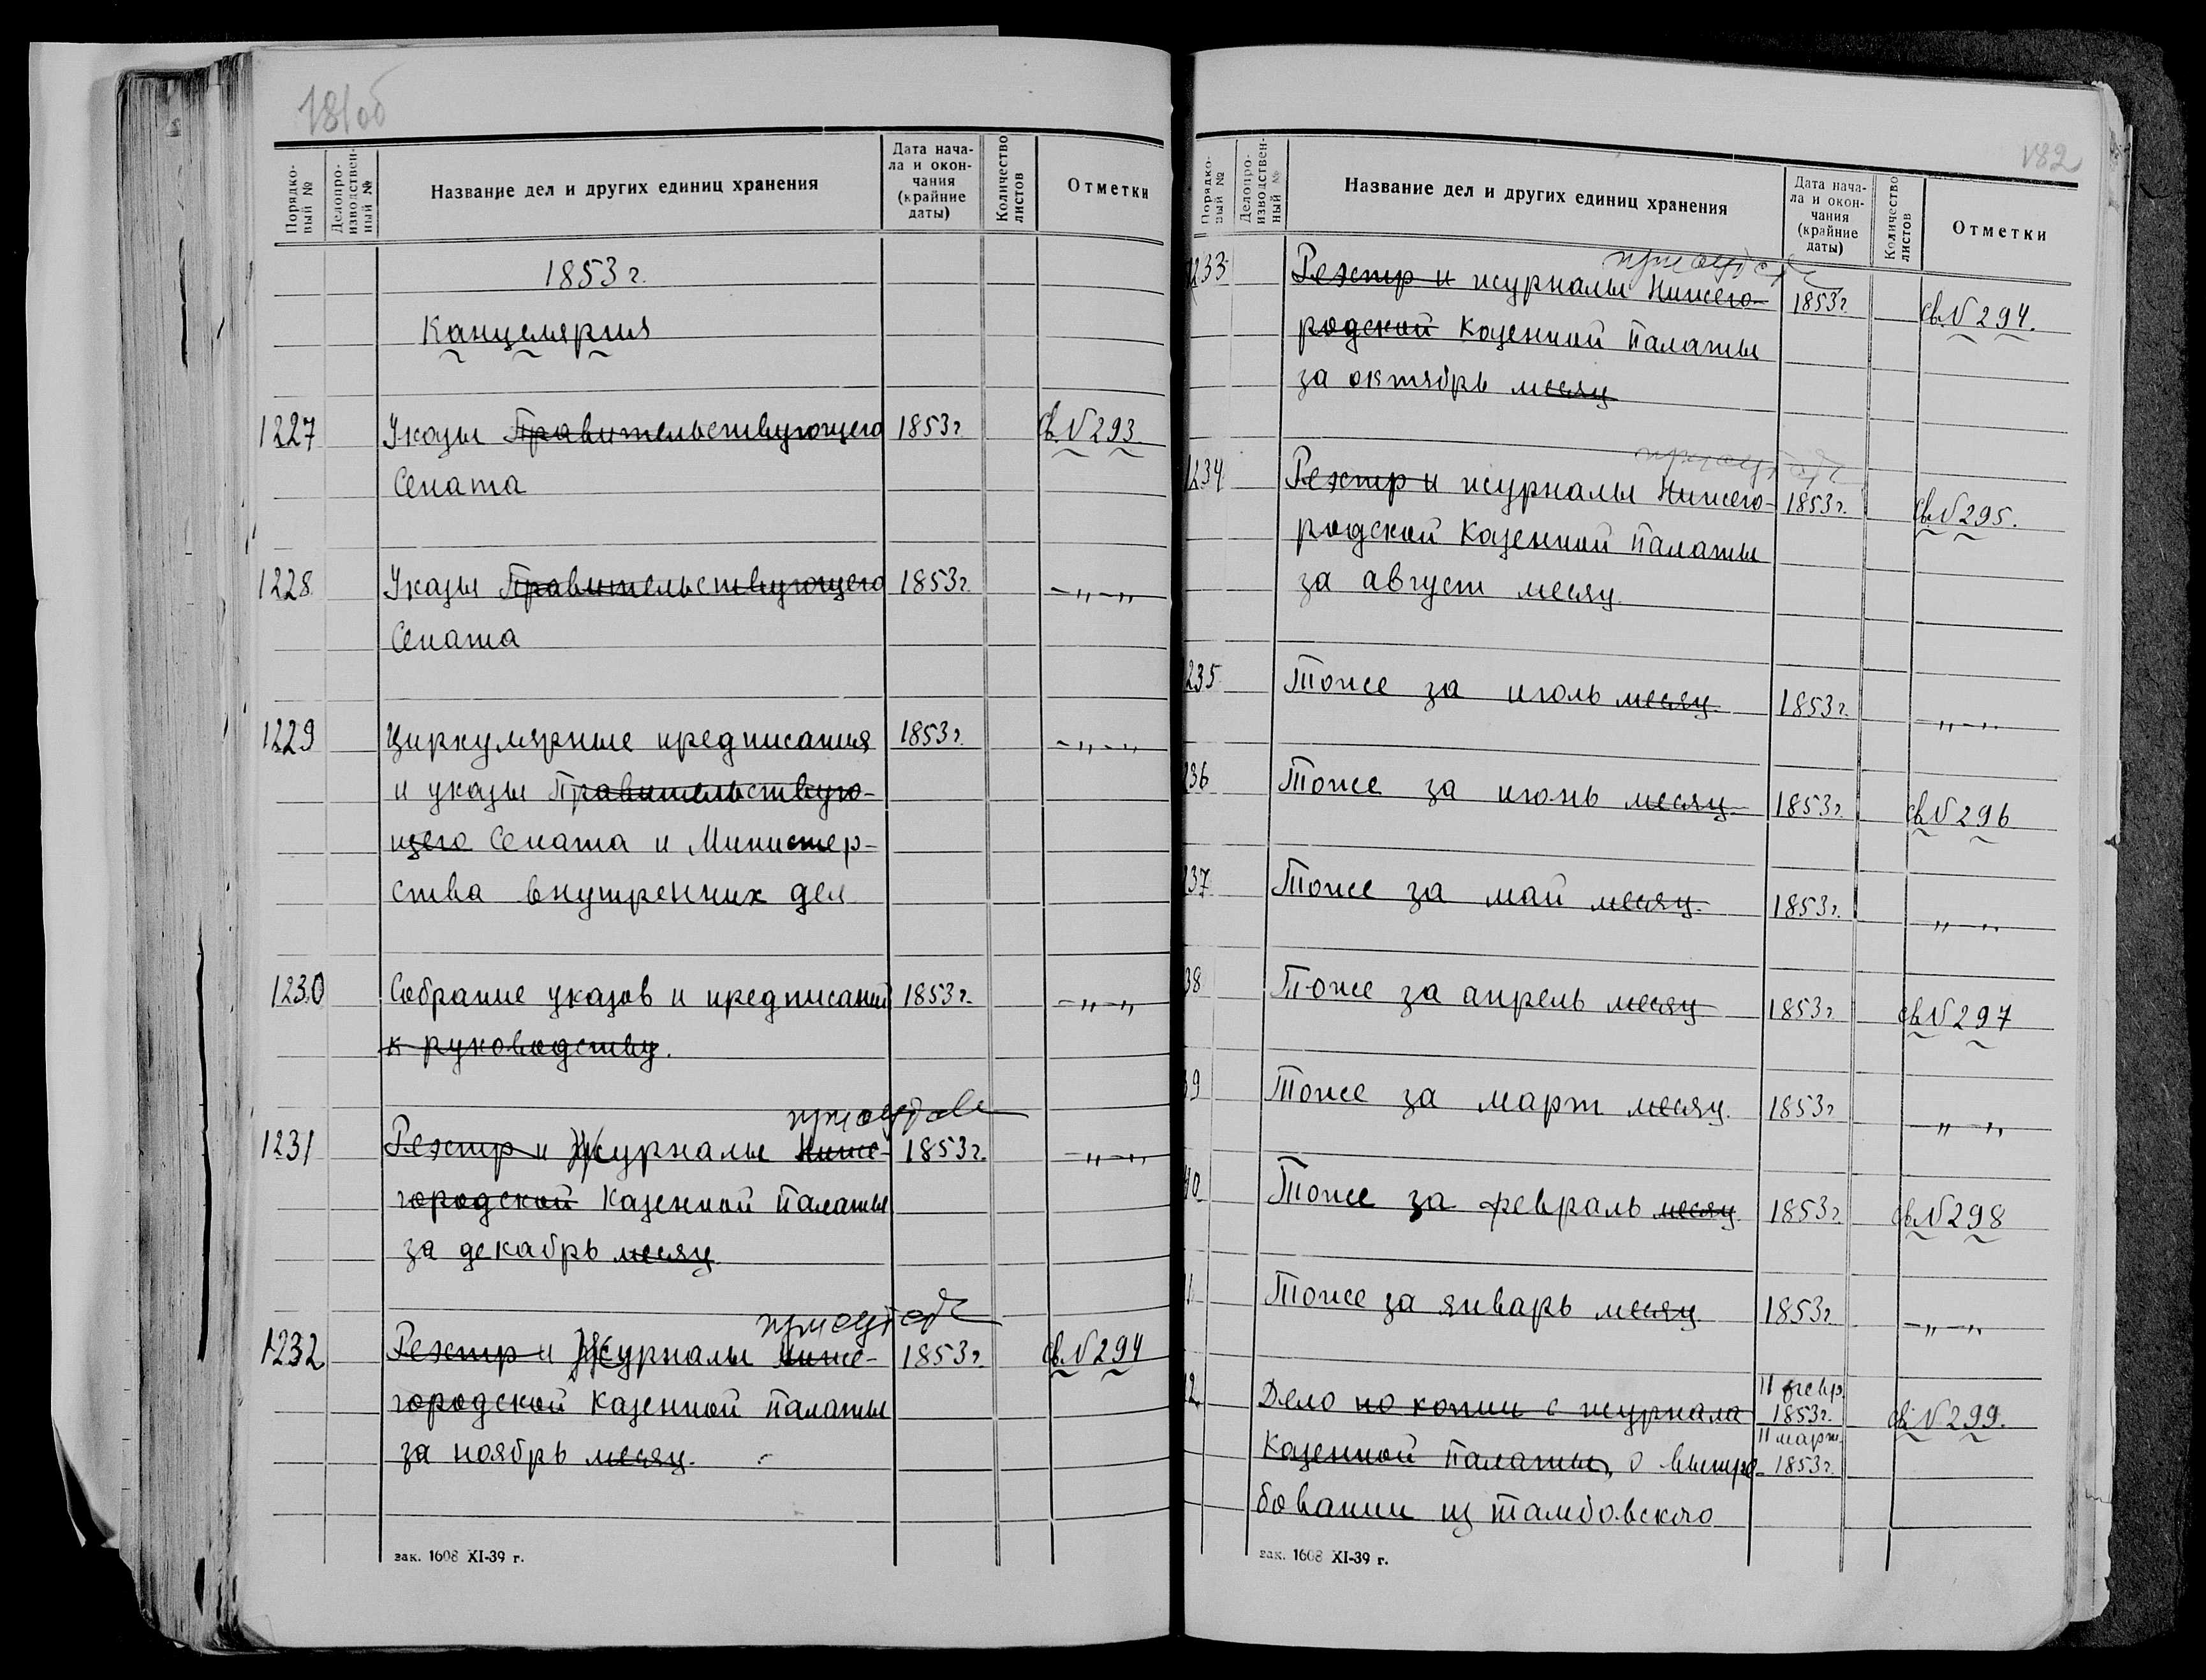 181об
Порядко-
вый №
Делопро-
изводствен-
ный №
Название дел и других единиц хранения
Дата нача-
ла и окон-
чания
(крайние
даты)
Количество
листов
Отметки
1853 г.
Канцелярия
1227 Указы Правительствующего 1853 г. св. № 293
Сената
1228 Указы Правительствующего 1853 г. -„-„
Сената
1229 Циркулярные предписания 1853 г. -„-„
и указы Правительствую-
щего Сената и Министер-
ства внутренних дел
1230 Собрание указов и предписаний 1853 г. -„-„
к руководству.
1231 Реэстр и Журналы Ниже- 1853 г. -„-„
городской Казенной Палаты
за декабрь месяц
1232 Реэстр и Журналы Ниже- 1853 г. св. № 294
городской Казенной Палаты
за ноябрь месяц.
зак. 1608 XI-39 г.
182
Порядко-
вый №
Делопро-
изводствен-
ный №
Название дел и других единиц хранения
Дата нача-
ла и окон-
чания
(крайние
даты)
Количество
листов
Отметки
1233 Реэстр и журналы Нижего- 1853 г. св. № 294.
родской Казенной Палаты
за октябрь месяц
1234 Реэстр и журналы Нижего- 1853 г. св. № 295.
родской Казенной Палаты
за август месяц
235 Тоже за июль месяц 1853 г. „-„
236 Тоже за июнь месяц 1853 г. св. № 296
237 Тоже за май месяц. 1853 г. „-„
38 Тоже за апрель месяц 1853 г. св. № 297
39 Тоже за март месяц. 1853 г. „-„
40 Тоже за февраль месяц 1853 г. св. № 298
1 Тоже за январь месяц 1853 г. -„-„
2 Дело по копии с журнала 11 февр. 1853 г. св. № 299.
Казенной Палаты, о вытре- 11 март. 1853 г.
бовании из Тамбовского
зак. 1608 XI-39 г.